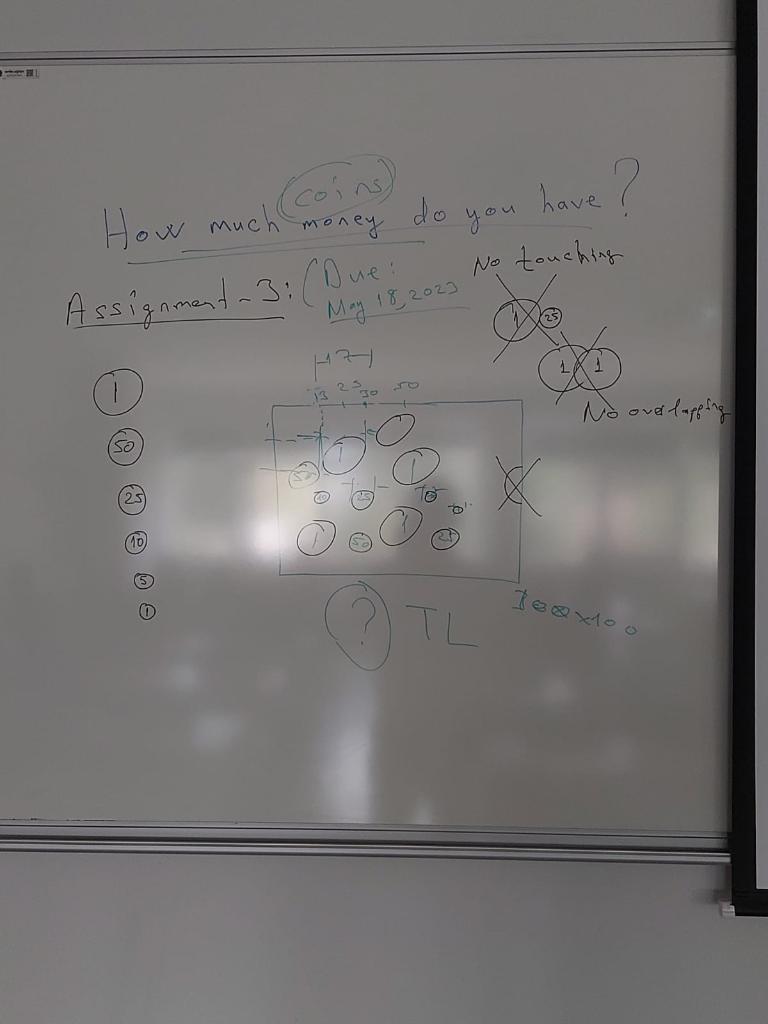 coins
How much money do you have?
Assignment-3: (Due:
May 18, 2023
No touching
1 25
1 1
No overlapping
1
50
25
10
5
1
17
13 25 30 50
1
50 1
10 25
1 50 1 25
? TL
100x100